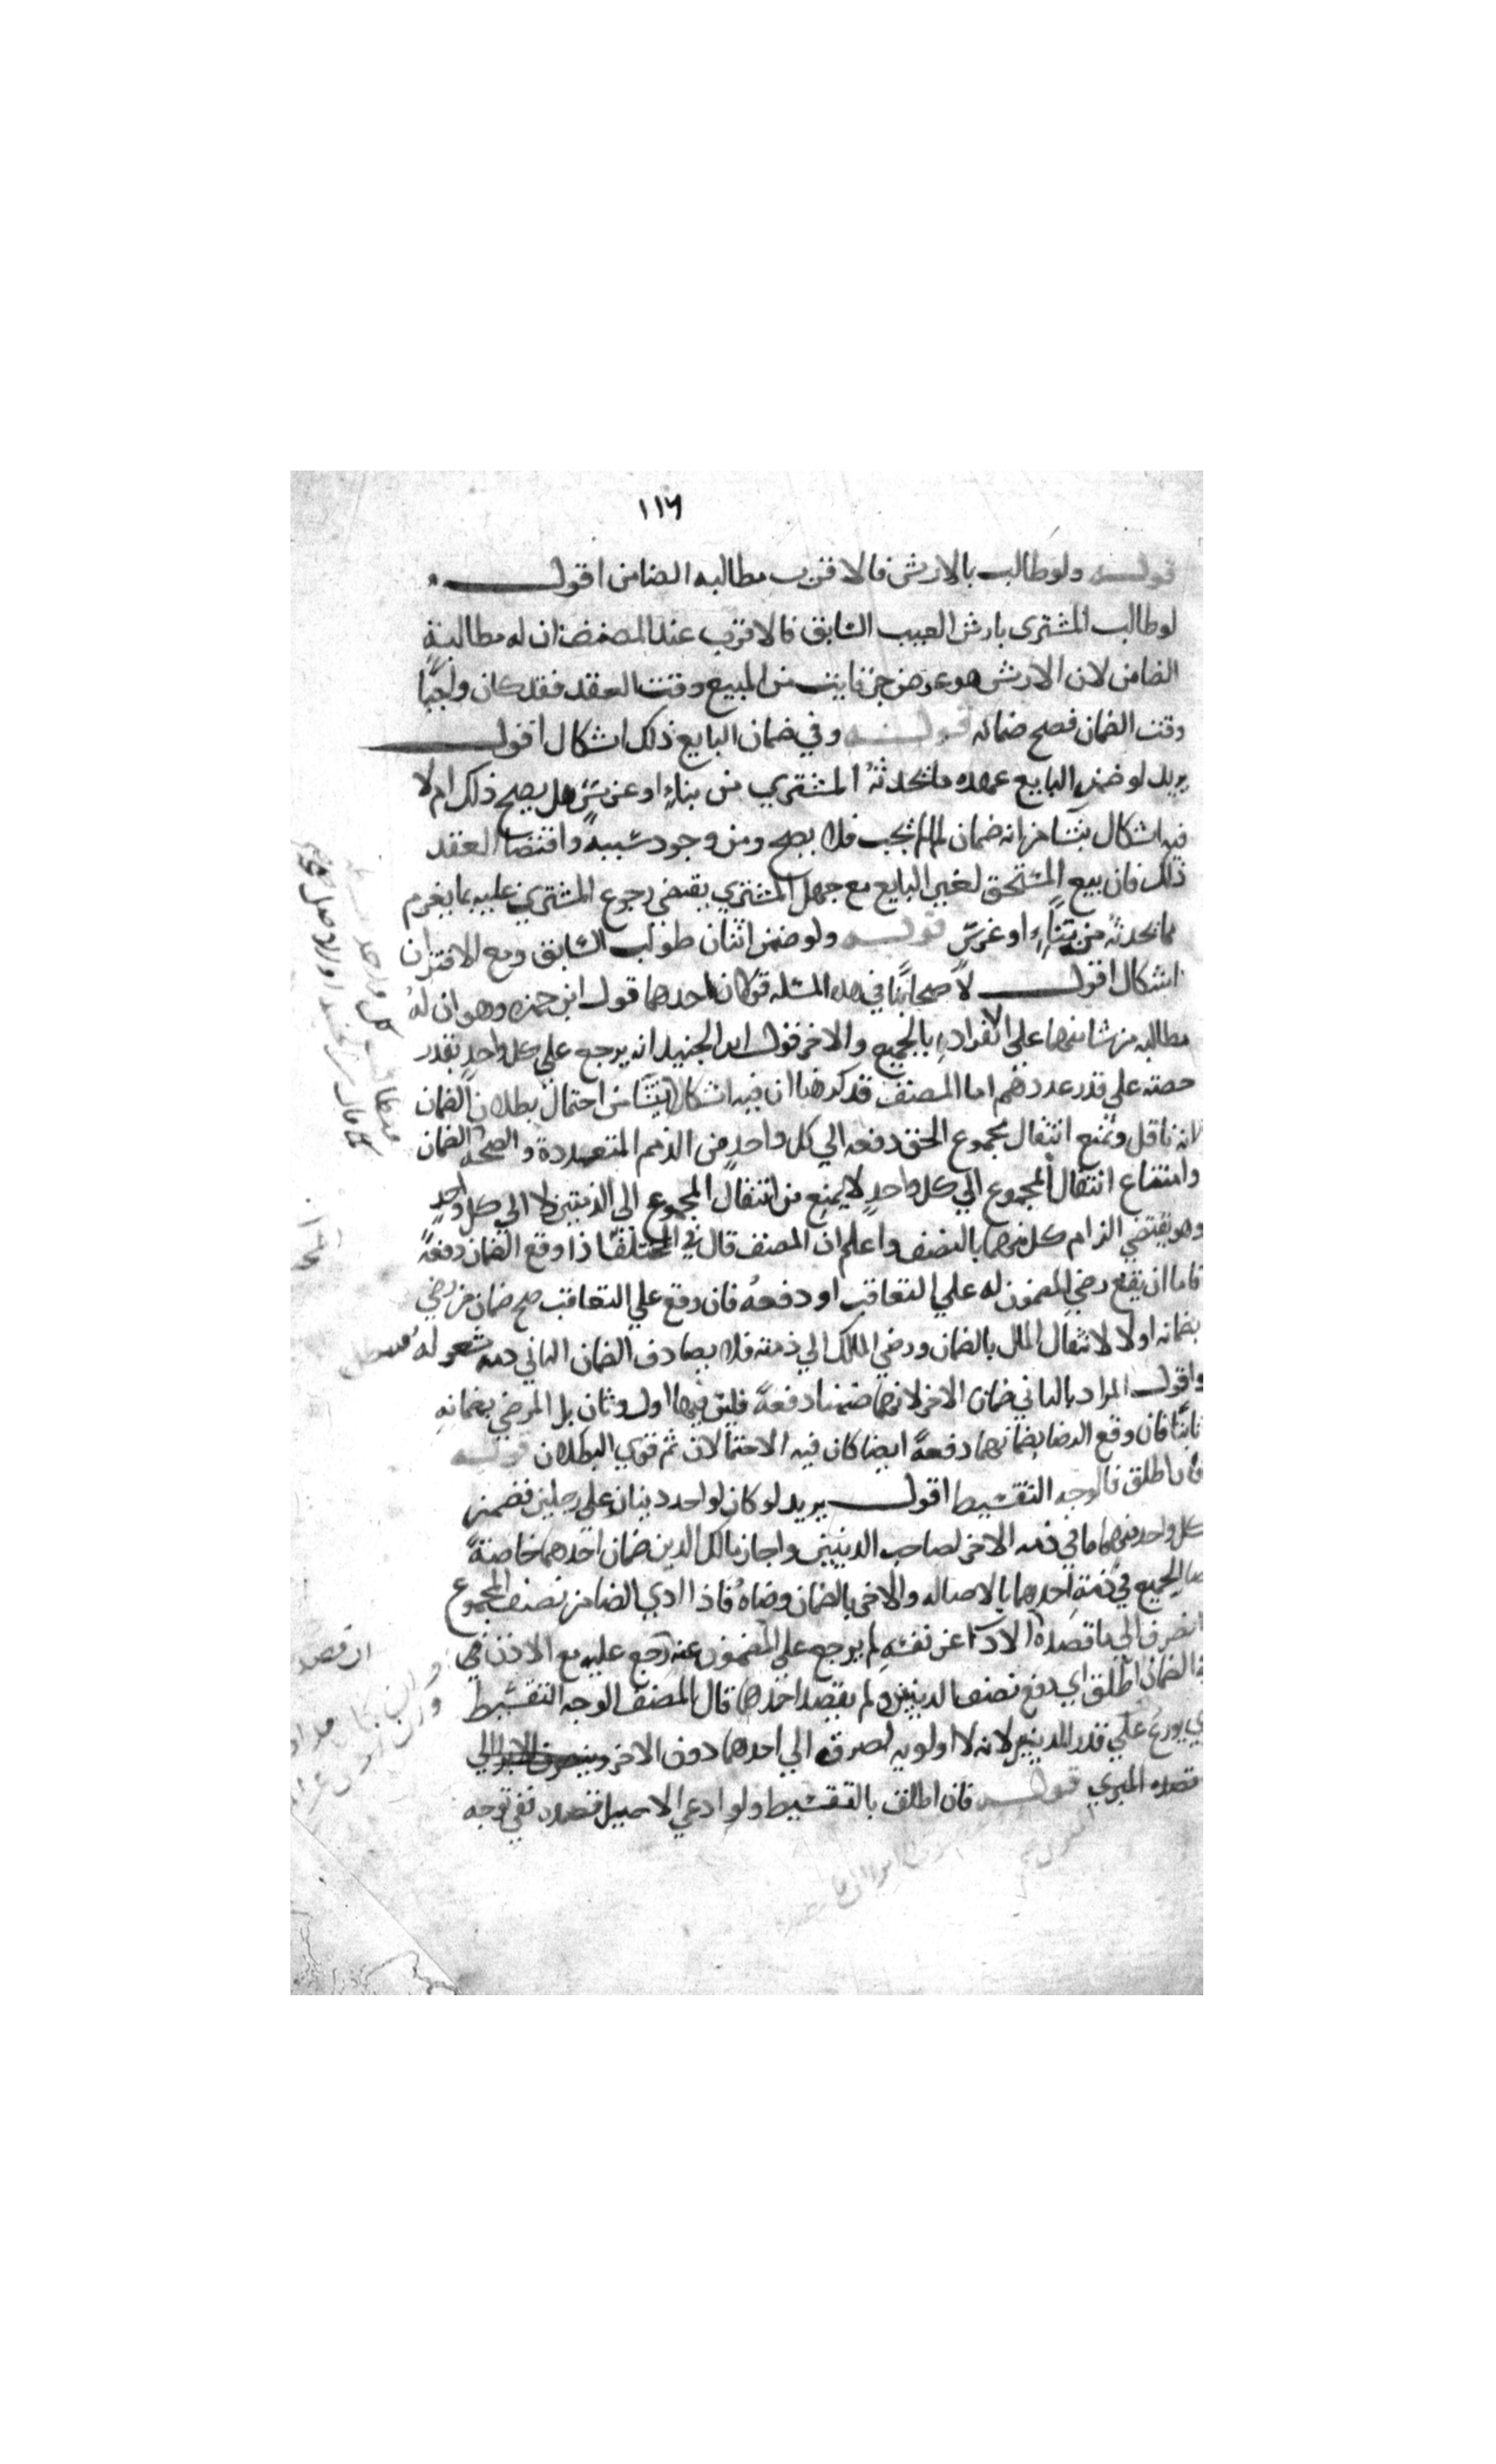 ١١٦
قوله ولو طالب بالارش فالاقرب مطالبه الضامن اقول
لو طالب المشتري بارش العيب السابق فالاقرب عند المصنف ان له مطالبة
الضامن لان الارش هو عوض جزء فايت من المبيع وقت العقد فقد كان واجبًا
وقت الضمان فصح ضمانه قوله وفي ضمان البايع ذلك اشكال اقول
يريد لو ضمن البايع عهده ما يحدثهُ المشتري من بناءٍ او غرسٍ هل يصح ذلك ام لا
فيه اشكال ينشا من انه ضمان ما لم يجب فلا يصح ومن وجود سببه واقتضا العقد
ذلك فان بيع المستحق لغير البايع مع جهل المشتري يقتضي رجوع المشتري عليه بما يغرم
مما يحدثه من بناءٍ او غرسٍ قوله ولو ضمن اثنان طولب السابق ومع الاقتران
اشكال اقول لاصحابنا في هذه المسئله قولان احدهما قول ابن حمزه وهو ان لهُ
مطالبه من شا منهما على الانفراد بالجميع والاخر قول ابن الجنيد انه يرجع على كل واحدٍ بقدر
حصته على قدر عددهم اما المصنف فذكر هنا ان فيه اشكالا ينشا من احتمال بطلان الضمان
لانه ناقل ويمتنع انتقال مجموع الحق دفعه الي كل واحدٍ من الذمم المتعددة والصحه الضمان
وامتناع انتقال المجموع الي كل واحدٍ لا يمنع من انتقال المجموع الى الذمتين لا الي كل واحدٍ
وهو يقتضي الزام كل منهما بالنصف واعلم ان المصنف قال في المختلف اذا وقع الضمان دفعةً
فاما ان يقع رضي المضمون له علي التعاقب او دفعهُ فان وقع علي التعاقب صح ضمان من رضي
بضمانه اولا لانتقال المال بالضمان ورضي المالك الي ذمته فلا يصادف الضمان الثاني ذمه
واقول المراد بالثاني ضمان الاخر لانهما ضمنا دفعةً فليس فيهما اول وثان بل المرضي بضمانهِ
ثانيًا فان وقع الرضا بضمانهما دفعةً ايضا كان فيه الاحتمالان ثم قوي البطلان قوله
فان اطلق فالوجه التقسيط اقول يريد لو كان لواحد دينان علي رجلين فضمن
كل واحد منهما ما في ذمه الاخر لصاحب الدينين واجاز مالك الدين ضمان احدهما خاصةً
صار الجميع في ذمةِ احدهما بالاصاله والاخر بالضمان ورضاهُ فاذا ادي الضامن نصف المجموع
انصرف الي ما قصده الادآ عن نفسهِ لم يرجع علي المضمون عنه رجع عليه مع الاذن في
الضمان اطلق اي دفع نصف الدينين ولم يقصد احدهما قال المصنف الوجه التقسيط
اي يوزع علي قدر الدينين لانه لا اولويه لصرفه الي احدهما دون الاخر
قصده المبري قوله فان اطلق بالتقسيط ولو ادعي الاصيل قصده ففي توجه